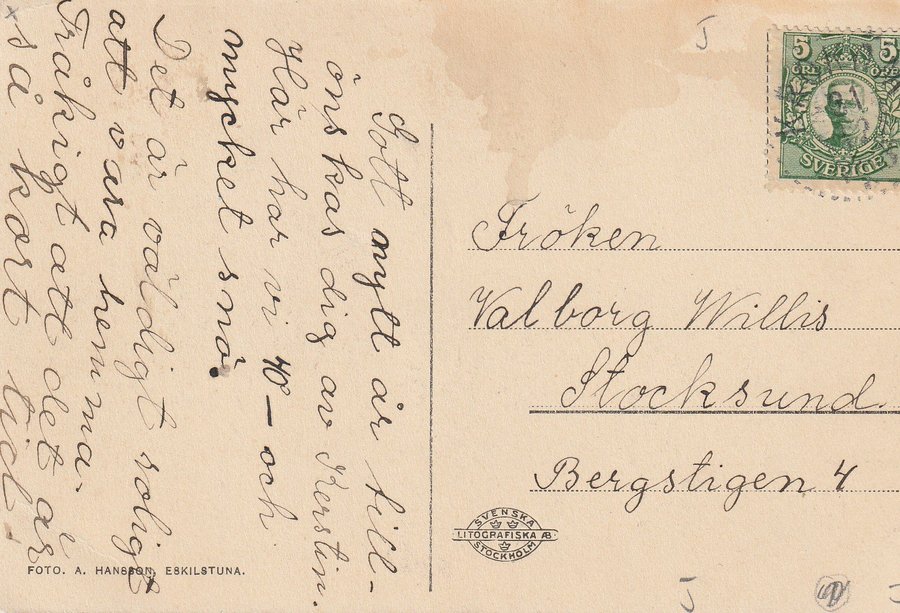 Gott nytt år till-
önskas dig av Kerstin.
Här har vi 40°— och
mycket snö.
Det är väldigt roligt
att vara hemma.
Tråkigt att det är
så kort tid!
5 5
ÖRE ÖRE
SVERIGE
Fröken
Valborg Willis
Stocksund
Bergstigen 4
SVENSKA
LITOGRAFISKA AB
STOCKHOLM
FOTO. A. HANSSON, ESKILSTUNA.